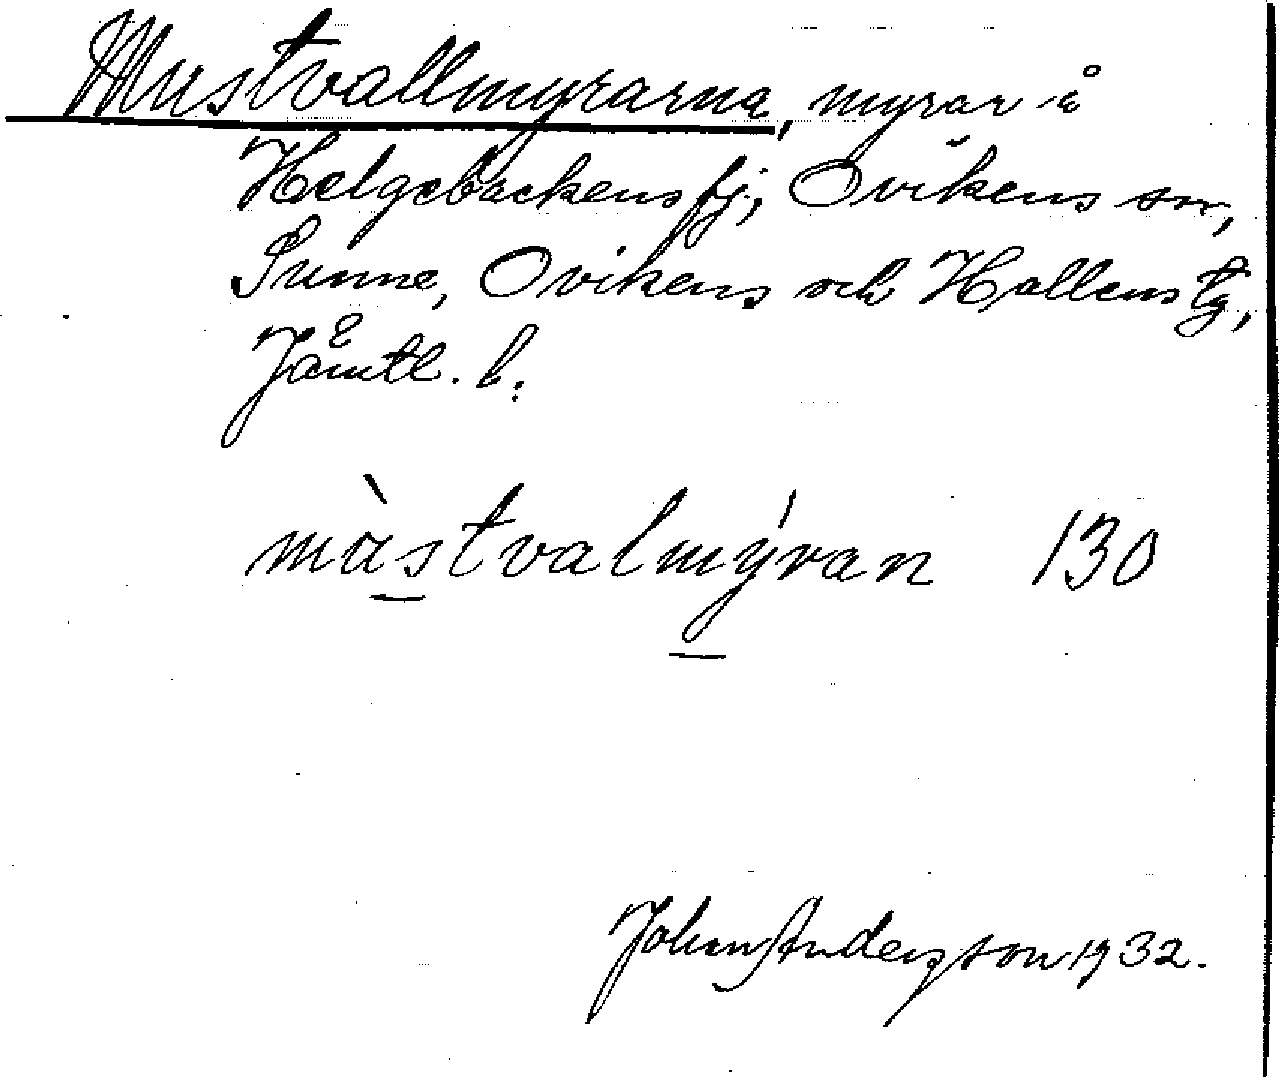 Mustvallmyrarna, myrar å
Helgebackens fj., Ovikens sn,
Sunne, Ovikens och Hallens tg,
Jämtl. l.
mùstvalmýran 130
Johan Anderzson 1932.